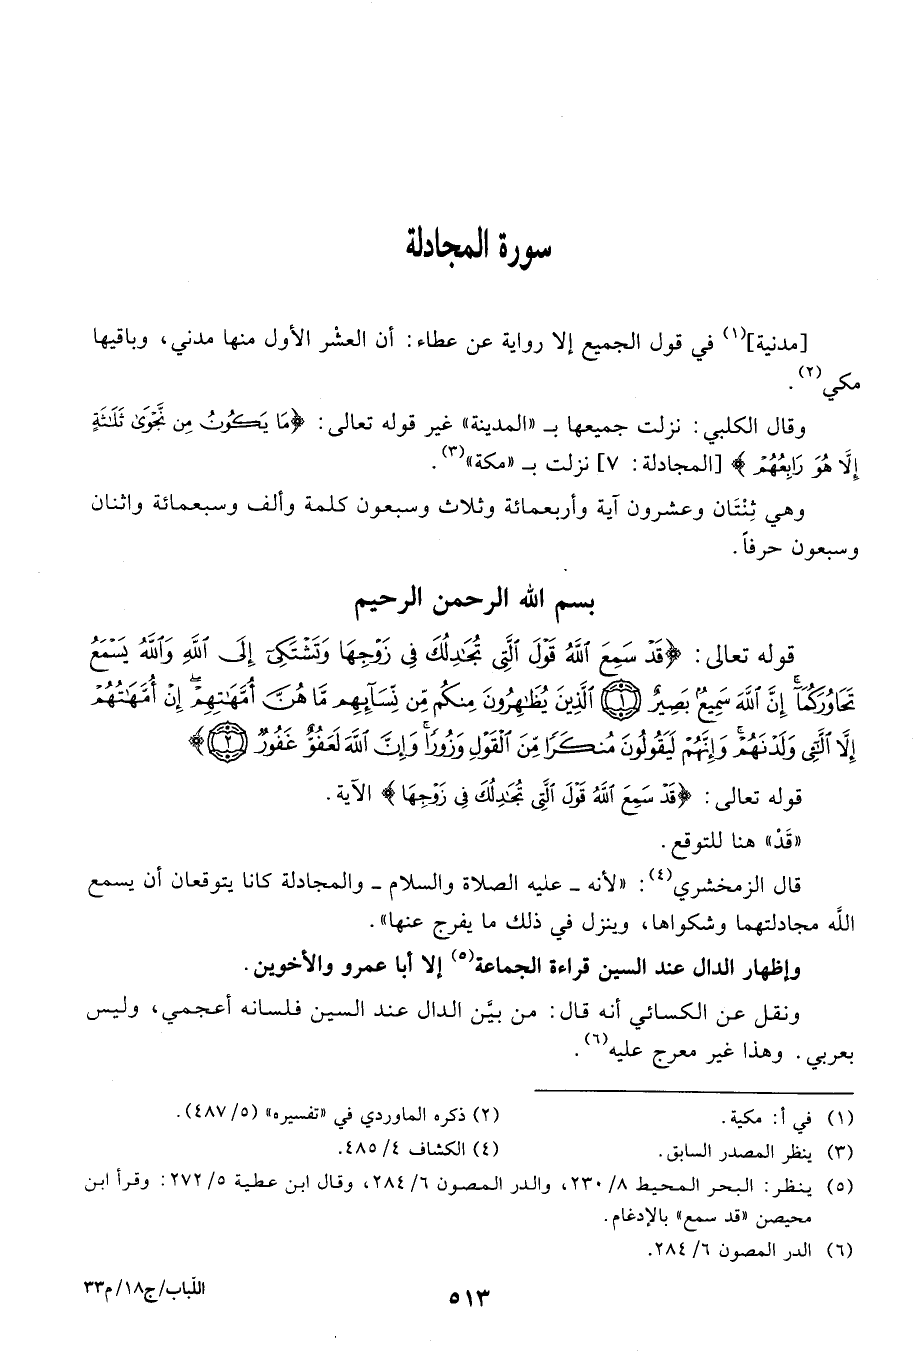 سورة المجادلة
[مدنية](١) في قول الجميع إلا رواية عن عطاء: أن العشْر الأول منها مدني، وباقيها
مكي(٢).
وقال الكلبي: نزلت جميعها بـ «المدينة» غير قوله تعالى: ﴿مَا يَكُونُ مِن نَّجْوَىٰ ثَلَٰثَةٍ
إِلَّا هُوَ رَابِعُهُمْ﴾ [المجادلة: ٧] نزلت بـ «مكة»(٣).
وهي ثِنْتَان وعشرون آية وأربعمائة وثلاث وسبعون كلمة وألف وسبعمائة واثنان
وسبعون حرفاً.
بسم الله الرحمن الرحيم
قوله تعالى: ﴿قَدْ سَمِعَ ٱللَّهُ قَوْلَ ٱلَّتِي تُجَٰدِلُكَ فِي زَوْجِهَا وَتَشْتَكِيٓ إِلَى ٱللَّهِ وَٱللَّهُ يَسْمَعُ
تَحَاوُرَكُمَآۚ إِنَّ ٱللَّهَ سَمِيعٌۢ بَصِيرٌ ﴿١﴾ ٱلَّذِينَ يُظَٰهِرُونَ مِنكُم مِّن نِّسَآئِهِم مَّا هُنَّ أُمَّهَٰتِهِمْۖ إِنْ أُمَّهَٰتُهُمْ
إِلَّا ٱلَّٰٓـِٔي وَلَدْنَهُمْۚ وَإِنَّهُمْ لَيَقُولُونَ مُنكَرًا مِّنَ ٱلْقَوْلِ وَزُورًاۚ وَإِنَّ ٱللَّهَ لَعَفُوٌّ غَفُورٌ ﴿٢﴾﴾
قوله تعالى: ﴿قَدْ سَمِعَ ٱللَّهُ قَوْلَ ٱلَّتِي تُجَٰدِلُكَ فِي زَوْجِهَا﴾ الآية.
«قَدْ» هنا للتوقع.
قال الزمخشري(٤): «لأنه ـ عليه الصلاة والسلام ـ والمجادلة كانا يتوقعان أن يسمع
اللَّه مجادلتهما وشكواها، وينزل في ذلك ما يفرج عنها».
وإظهار الدال عند السين قراءة الجماعة(٥) إلا أبا عمرو والأخوين.
ونقل عن الكسائي أنه قال: من بيَّن الدال عند السين فلسانه أعجمي، وليس
بعربي. وهذا غير معرج عليه(٦).
(١) في أ: مكية.
(٢) ذكره الماوردي في «تفسيره» (٥/ ٤٨٧).
(٣) ينظر المصدر السابق.
(٤) الكشاف ٤/ ٤٨٥.
(٥) ينظر: البحر المحيط ٨/ ٢٣٠، والدر المصون ٦/ ٢٨٤، وقال ابن عطية ٥/ ٢٧٢: وقرأ ابن
محيصن «قد سمع» بالإدغام.
(٦) الدر المصون ٦/ ٢٨٤.
اللّباب/ج١٨/م٣٣
٥١٣